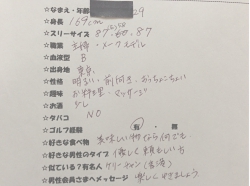 ☆なまえ・年齢 29
☆身長 169cm
☆スリーサイズ 87.60.87
☆職業 主婦・メークモデル
☆血液型 B
☆出身地 東京
☆性格 明るい・前向き・おっちょこちょい
☆趣味 お料理・マッサージ
☆お酒 少し
☆タバコ NO
☆ゴルフ経験 有・無
☆好きな食べ物 美味しい物なら何でも
☆好きな男性のタイプ 優しく頼もしい方
☆似ている?有名人 ケリーチャン(香港)
☆男性会員さまへメッセージ 楽しく